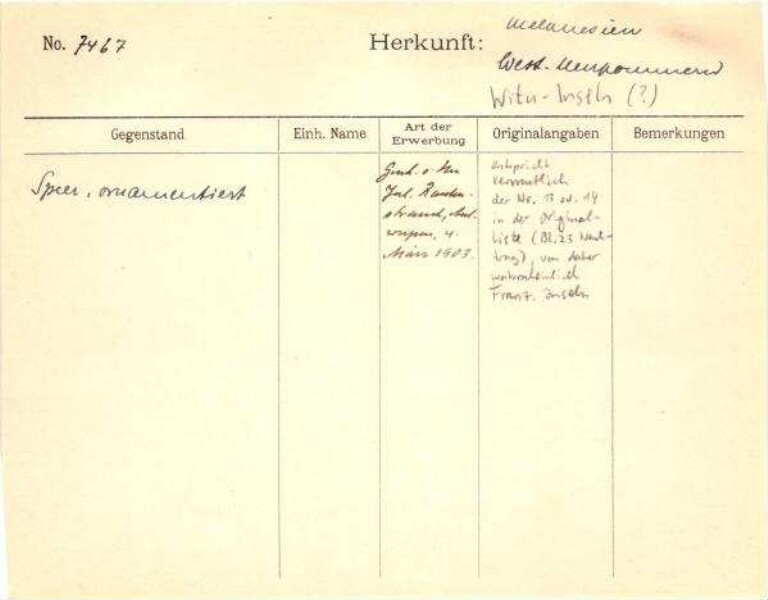 No. 7467
Herkunft:
Melanesien
West-Neupommern
Witu-Inseln (?)
Gegenstand
Einh. Name
Art der
Erwerbung
Originalangaben
Bemerkungen
Speer, ornamentiert
Jul.
strand, Ant-
werpen, 4.
März 1903.
entspricht
vermutlich
der Nr. 13 od. 14
in der Original-
liste (Bl. 23 Nach-
trag), von daher
wahrscheinlich
Franz. Inseln